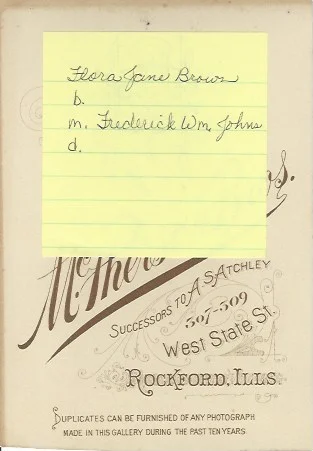 Flora Jane Brown
b.
m. Frederick Wm. Johns
d.
s.
SUCCESSORS TO A.S. ATCHLEY
307-309
West State St.
ROCKFORD, ILLS.
DUPLICATES CAN BE FURNISHED OF ANY PHOTOGRAPH
MADE IN THIS GALLERY DURING THE PAST TEN YEARS.